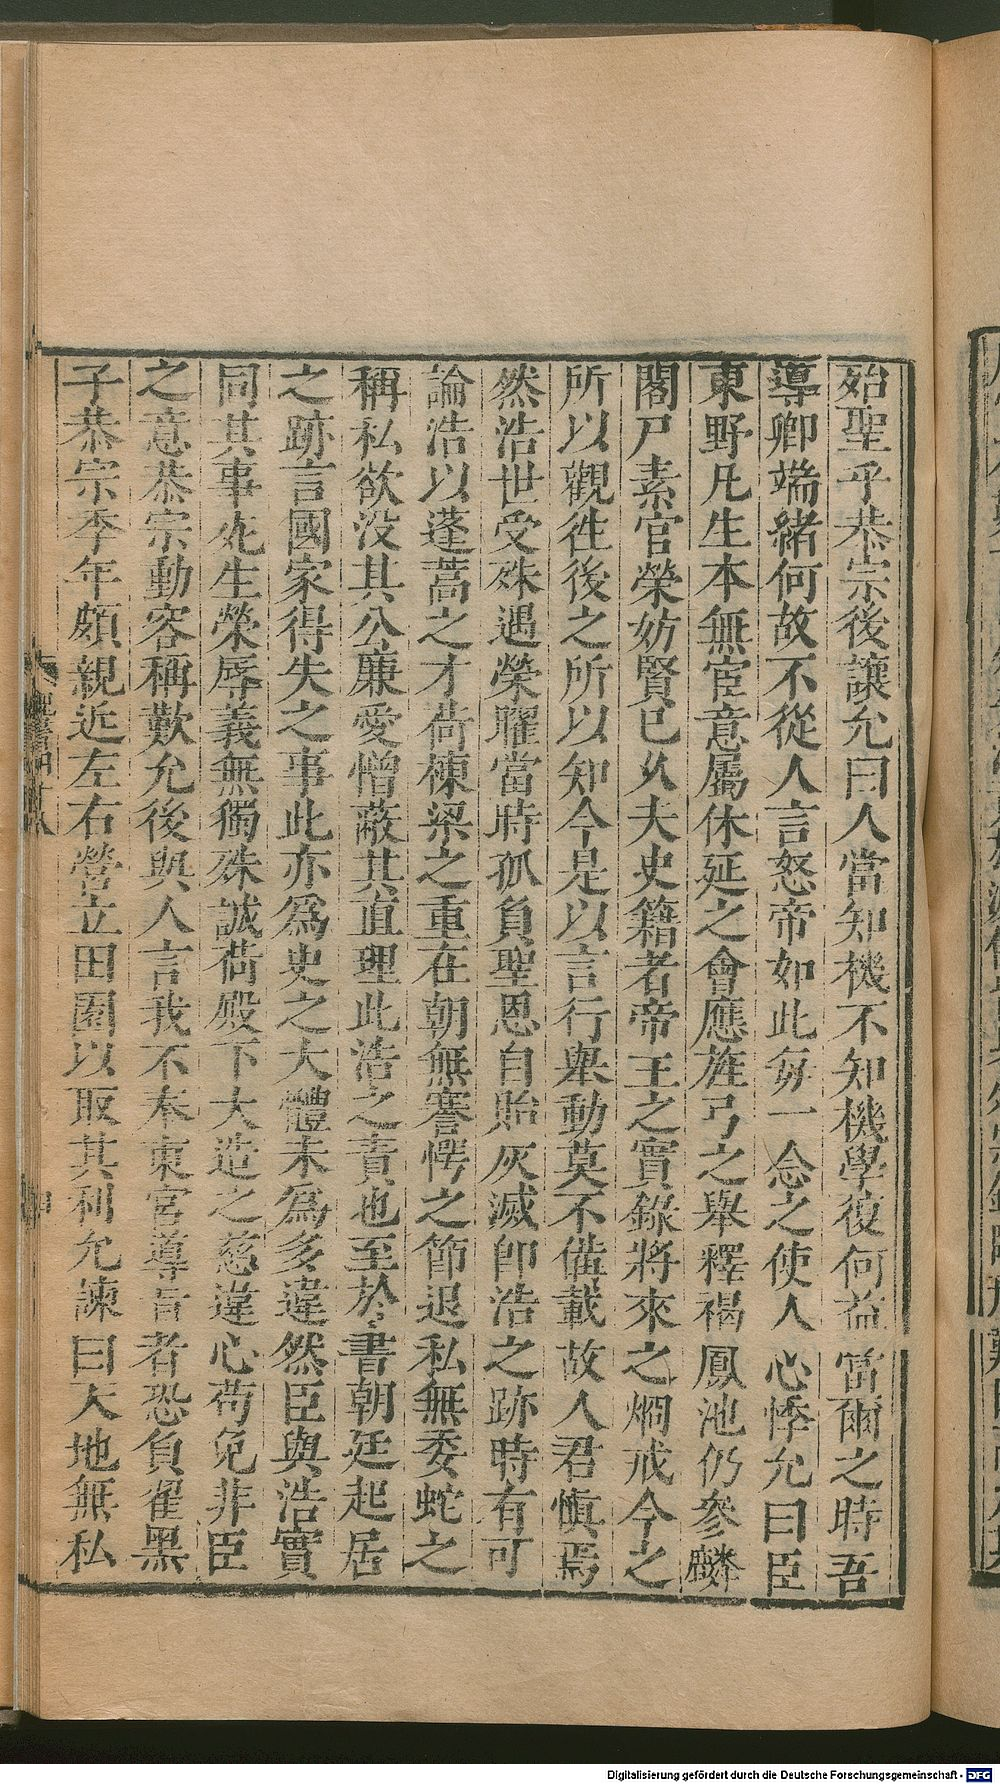 殆聖乎恭宗後讓允曰人當知機不知機學復何益當爾之時吾
導卿端緒何故不從人言怒帝如此每一念之使人心悸允曰臣
東野凡生本無宦意屬休延之會應旌弓之舉釋褐鳳池仍參麟
閣尸素官榮妨賢已久夫史籍者帝王之實錄將來之烱戒今之
所以觀徃後之所以知今是以言行舉動莫不備載故人君愼焉
然浩世受殊遇榮曜當時孤負聖恩自貽灰滅卽浩之跡時有可
論浩以蓬蒿之才荷棟梁之重在朝無謇愕之節退私無委蛇之
稱私欲没其公廉愛憎蔽其直理此浩之責也至於書朝廷起居
之跡言國家得失之事此亦爲史之大體未爲多違然臣與浩實
同其事死生榮辱義無獨殊誠荷殿下大造之慈違心苟免非臣
之意恭宗動容稱歎允後與人言我不奉東宮導旨者恐負翟黑
子恭宗季年頗親近左右營立田園以取其利允諫曰天地無私
Digitalisierung gefördert durch die Deutsche Forschungsgemeinschaft - DFG